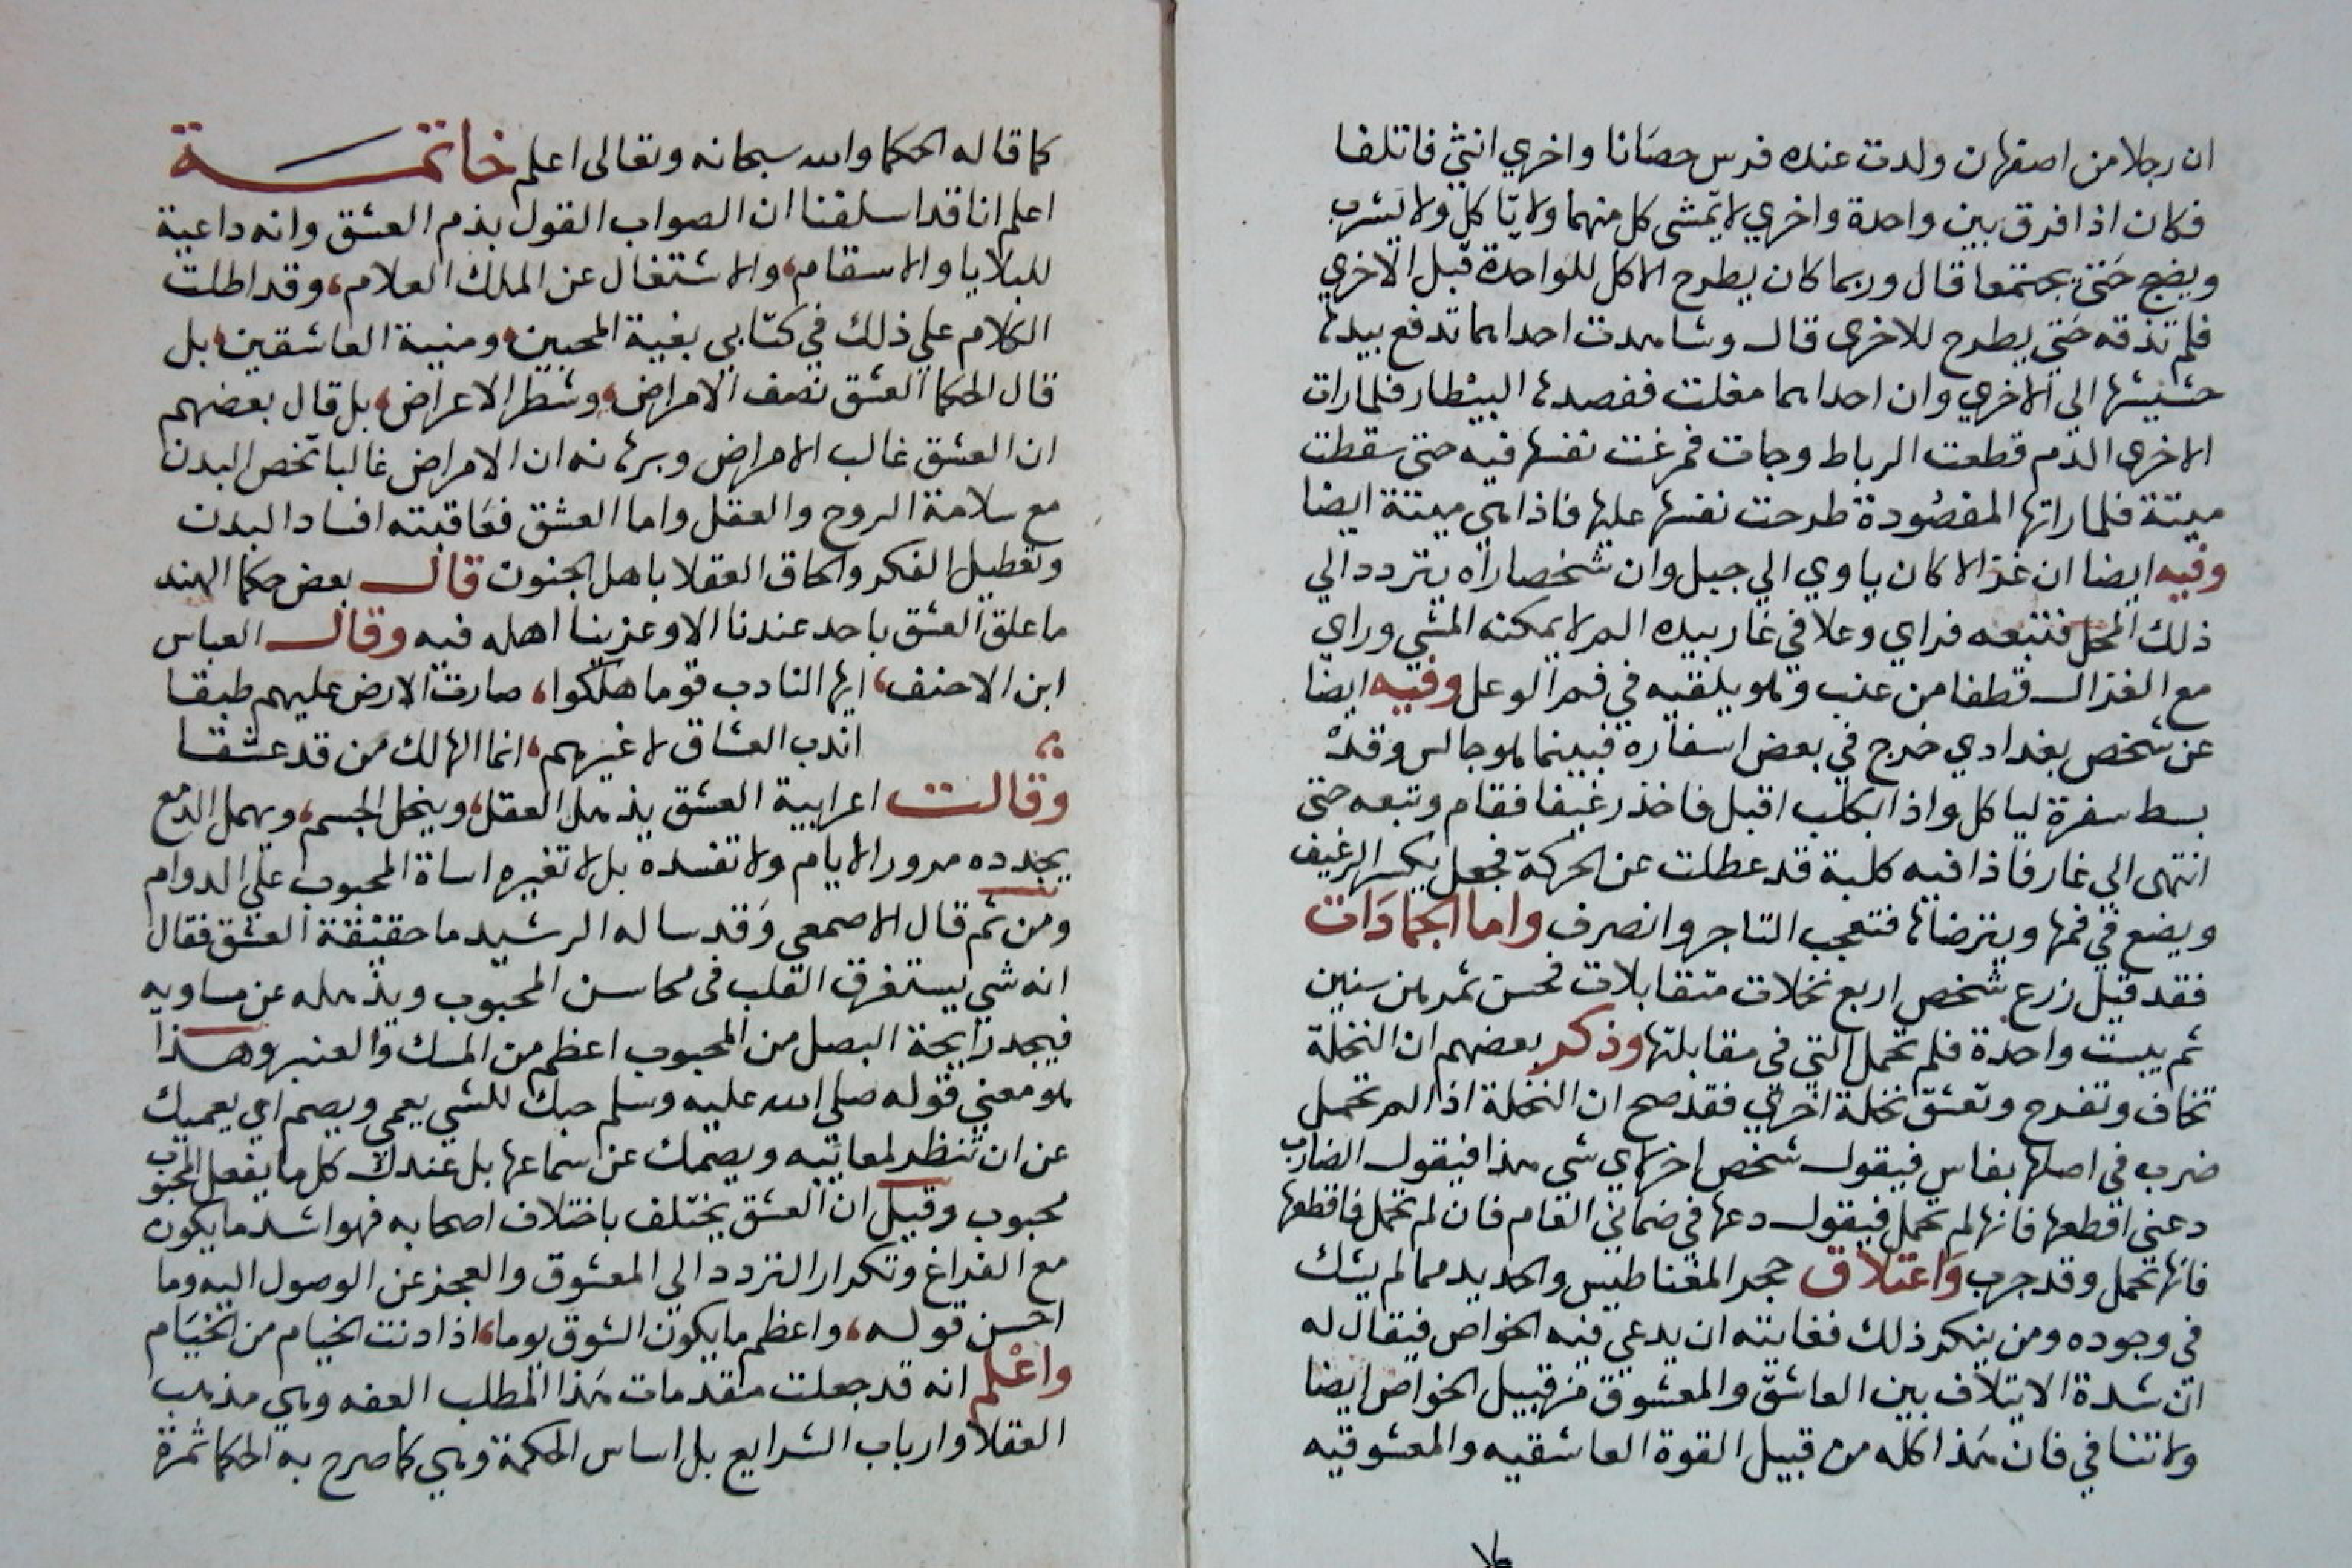 ان رجلا من اصفهان ولدت عنده فرس حصَانا واخري انثي فاتلفا
فكان اذا فرق بين واحدة واخري لا يمشي كل منهما ولا ياكل ولا يشرب
ويضج حَتي يجتمعا قال وربما كان يطرح الاكل للواحدة قبل الاخري
فلم تذقه حَتي يطرح للاخرى قال وشاهدت احداهما تدفع بيدها
حشيشها الي الاخري وان احداهما مغلت ففصدها البيْطار فلما رات
الاخري الدم قطعت الرباط وجات فمرغت نفسها فيه حتي سقطت
ميتة فلما راتها المفصُودة طرحت نفسها عليها فاذا هي ميتة ايضا
وفيه ايضا ان غزالا كان ياوي الي جبل وان شخصا راه يتردد الي
ذلك المحل فتتبعه فراي وعلا في غار بيده الم لا يمكنه المشي وراي
مع الغزال قطفا من عنب وهو يلقيه في فم الوعل وفيه ايضا
عن شخص بغدادي خرج في بعض اسفاره فبينما هو جالس وقد
بسط سفرة لياكل واذا بكلب اقبل فاخذ رغيفا فقام وتبعه حتى
انتهى الي غار فاذا فيه كلبة قد عطلت عن الحركة فجعل يكسر الرغيف
ويضع في فمها ويترضاها فتعجب التاجر وانصرف واما الجمادَات
فقد قيل زرع شخص اربع نخلات متقابلات فحسن ثمرهن سنين
ثم يبست واحدة فلم تحمل التي في مقابلتها وذكر بعضهم ان النخلة
تخاف وتفرح وتعشق نخلة اخري فقد صح ان النخلة اذا لم تحمل
ضرب في اصلها بفاس فيقول شخص اخر اي شي هذا فيقول الضارب
دعني اقطعها فانها لم تحمل فيقول دعها في ضماني العام فان لم تحمل فاقطعها
فانها تحمل وقد جرب وَاعتلاق حجر المغناطيس والحديد مما لم يشك
في وجوده ومن ينكر ذلك فغايته ان يدعي فيه الخواص فيقال له
ان شدة الايتلاف بين العاشق والمعشوق من قبيل الخواص ايضا
ولا تنافي فان هذا كله من قبيل القوة العاشقيه والمعشوقيه
كما قاله الحكما والله سبحانه وتعالى اعلم خاتمــة
اعلم انا قد اسلفنا ان الصواب القول بذم العشق وانه داعية
للبلايا والاسقام، والاشتغال عن الملك العلام، وقد اطلت
الكلام علي ذلك في كتابي بغية المحبين، ومنية العاشقين، بل
قال الحكما العشق نصف الامراض، وشطر الاعراض، بل قال بعضهم
ان العشق غالب الامراض وبرهانه ان الامراض غالبا تخص البدن
مع سلامة الروح والعقل واما العشق فعَاقبته افساد البدن
وتعطيل الفكر والحاق العقلا باهل الجنون قال بعض حكما الهند
ما علق العشق باحد عندنا الا وعزينا اهله فيه وقال العباس
ابن الاحنف، ايها النادب قوما هلكوا، صارت الارض عليهم طبقا
اندب العشاق لا غيرهم، انما الهالك من قد عشقا
وقالت اعرابية العشق يذهل العقل، وينحل الجسم، ويهمل الدمع
يجدده مرور الايام ولا تفسده بل لا تغيره اساة المحبوب علي الدوام
ومن ثم قال الاصمعي وَقد ساله الرشيد ما حقيقة العشق فقال
انه شي يستغرق القلب في محاسن المحبوب ويذهله عن مساويه
فيجد رايحة البصل من المحبوب اعظم من المسك والعنبر وهذا
هو معني قوله صلى الله عليه وسلم حبك للشي يعمي ويصم اي يعميك
عن ان تنظر لمعايبه ويصمك عن سماعها بل عندك كل ما يفعل المحبوب
محبوب وقيل ان العشق يختلف باختلاف اصحابه فهو اشد ما يكون
مع الفراغ وتكرار التردد الي المعشوق والعجز عن الوصول اليه وما
احسن قوله، واعظم ما يكون الشوق يوما، اذا دنت الخيام من الخيَام
واعْلم انه قد جعلت مقدمات هَذا المطلب العفه وهي مذهب
العقلا وارباب الشرايع بل اساس الحكمة وهي كما صرح به الحكما ثمرة